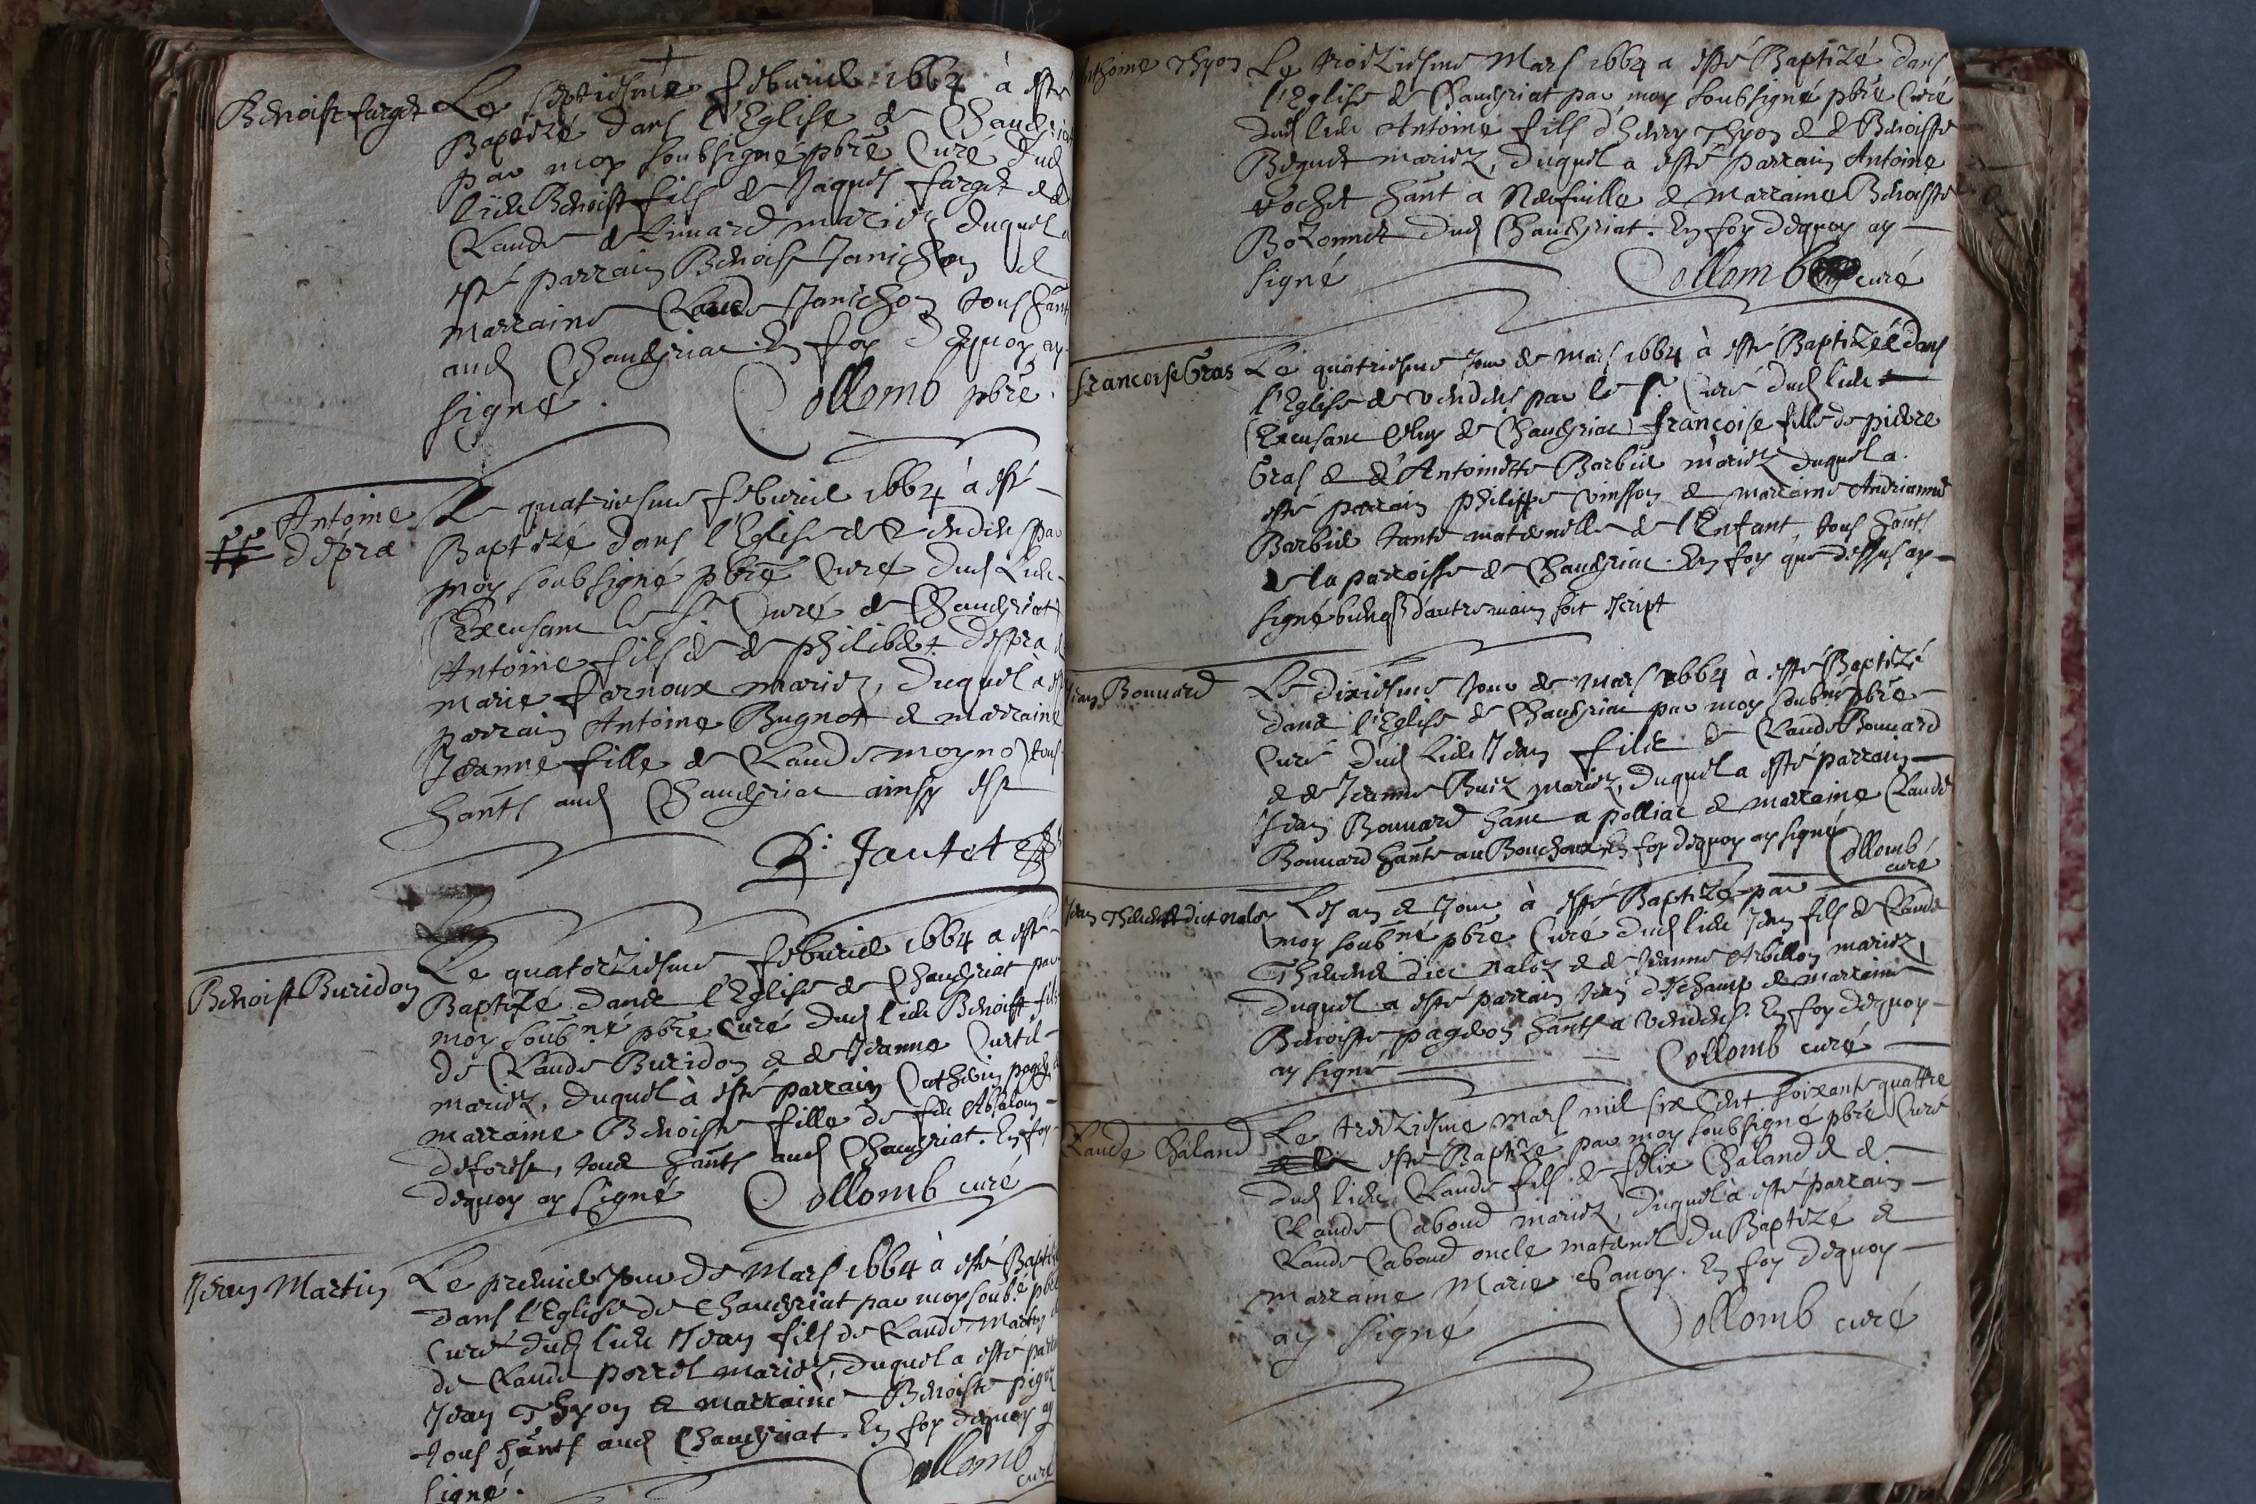 Benoist farget
Le septiesme febvrier 1664 à esté
Baptizé dans l'Eglise de Chaveyriat
par moy soubsigné pbre Curé dud
lieu Benoist fils de Jaques farget et de
Claude mariez duquel a
esté parrain Benoist Janichon et
marraine Claude Janichon tous hants
aud Chaveyriat. En foy dequoy ay
signé. Collomb pbre.
Antoine
depra
Le quatriesme febvrier 1664 à esté
Baptizé dans l'Eglise de Vendens par
moy soubsigné pbre Curé dud Lieu
(Excusant le Sr Curé de Chaveyriat)
Antoine fils de de philibert despra
marie farnoux mariez, duquel à esté
parrain Antoine Bugnot et marraine
Jeanne fille de Claude moyno) tous
hants aud Chaveyriat ainsy est
Jantet
Benoist Buridon
Le quatorziesme febvrier 1664 a esté
Baptizé dans l'Eglise de Chaveyriat par
moy soubné pbre Curé dud lieu Benoist fils
de Claude Buridon et de Jeanne Curtil
mariez, duquel à esté parrain Cathelin
marraine Benoiste fille de feu Absalom
deforest, tous hants aud Chaveyriat. En foy
dequoy ay signé Collomb curé
Jean Martin
Le premier Jour de Mars 1664 à esté Baptizé
dans l'Eglise de Chaveyriat par moy soubné pbre
Curé dud lieu Jean fils de Claude Martin
de Claude perret mariez, duquel a esté parrain
Jean Thyon et marraine Benoiste
tous hants aud Chaveyriat. En foy dequoy ay
signé. Collomb
curé
Anthoine Thyon
Le troiziesme Mars 1664 a esté Baptizé dans
l'Eglise de Chaveyriat par moy soubsigné pbre Curé
dud lieu Antoine fils d'henry Thyon et de Benoiste
Beguet mariez, duquel a esté parrain Antoine
Vochet hant a Neufville et marraine Benoiste
Bozonnet dud Chaveyriat. En foy dequoy ay
signé Collomb curé
francoise Gras
Le quatriesme Jour de Mars 1664 à esté Baptizée dans
l'Eglise de Vendens par le Sr Curé dud lieu
(Excusant Celuy de Chaveyriat) françoise fille de pierre
Gras et d'Antoinette Barbier mariez duquel a
esté parrain philippe vinsson et marraine Andrianne
Barbier tante maternelle de l'Enfant, tous hants
de la parroisse de Chaveyriat. En foy que dessus ay
signé d'autre main soit escript
Jean Bouvard
Le dixiesme Jour de Mars 1664 à esté Baptizé
dans l'Eglise de Chaveyriat par moy soubné pbre
Curé dud Lieu Jean fils de Claude Bouvard
et de Jeanne Buiz mariez, duquel a esté parrain
Jean Bouvard hant a polliat et marraine Claude
Bouvard hante au Bouchoux En foy dequoy ay signé Collomb
curé
Jean dict naloz
Les an et Jour à esté Baptizé par
moy soubné pbre Curé dud lieu Jean fils de Claude
dict naloz et de Jeanne Arbillon mariez,
duquel a esté parrain Jean deschamp et marraine
Benoiste pageon hants a Vendens. En foy dequoy
ay signé Collomb curé
Claude Chaland
Le treiziesme Mars mil six Cent soixante quattre
esté Baptizé par moy soubsigné pbre Curé
dud lieu Claude fils de felix Chaland et de
Claude Caboud mariez, duquel à esté parrain
Claude Caboud oncle maternel du Baptize et
marraine Marie Savoy. En foy dequoy
ay signé Collomb curé